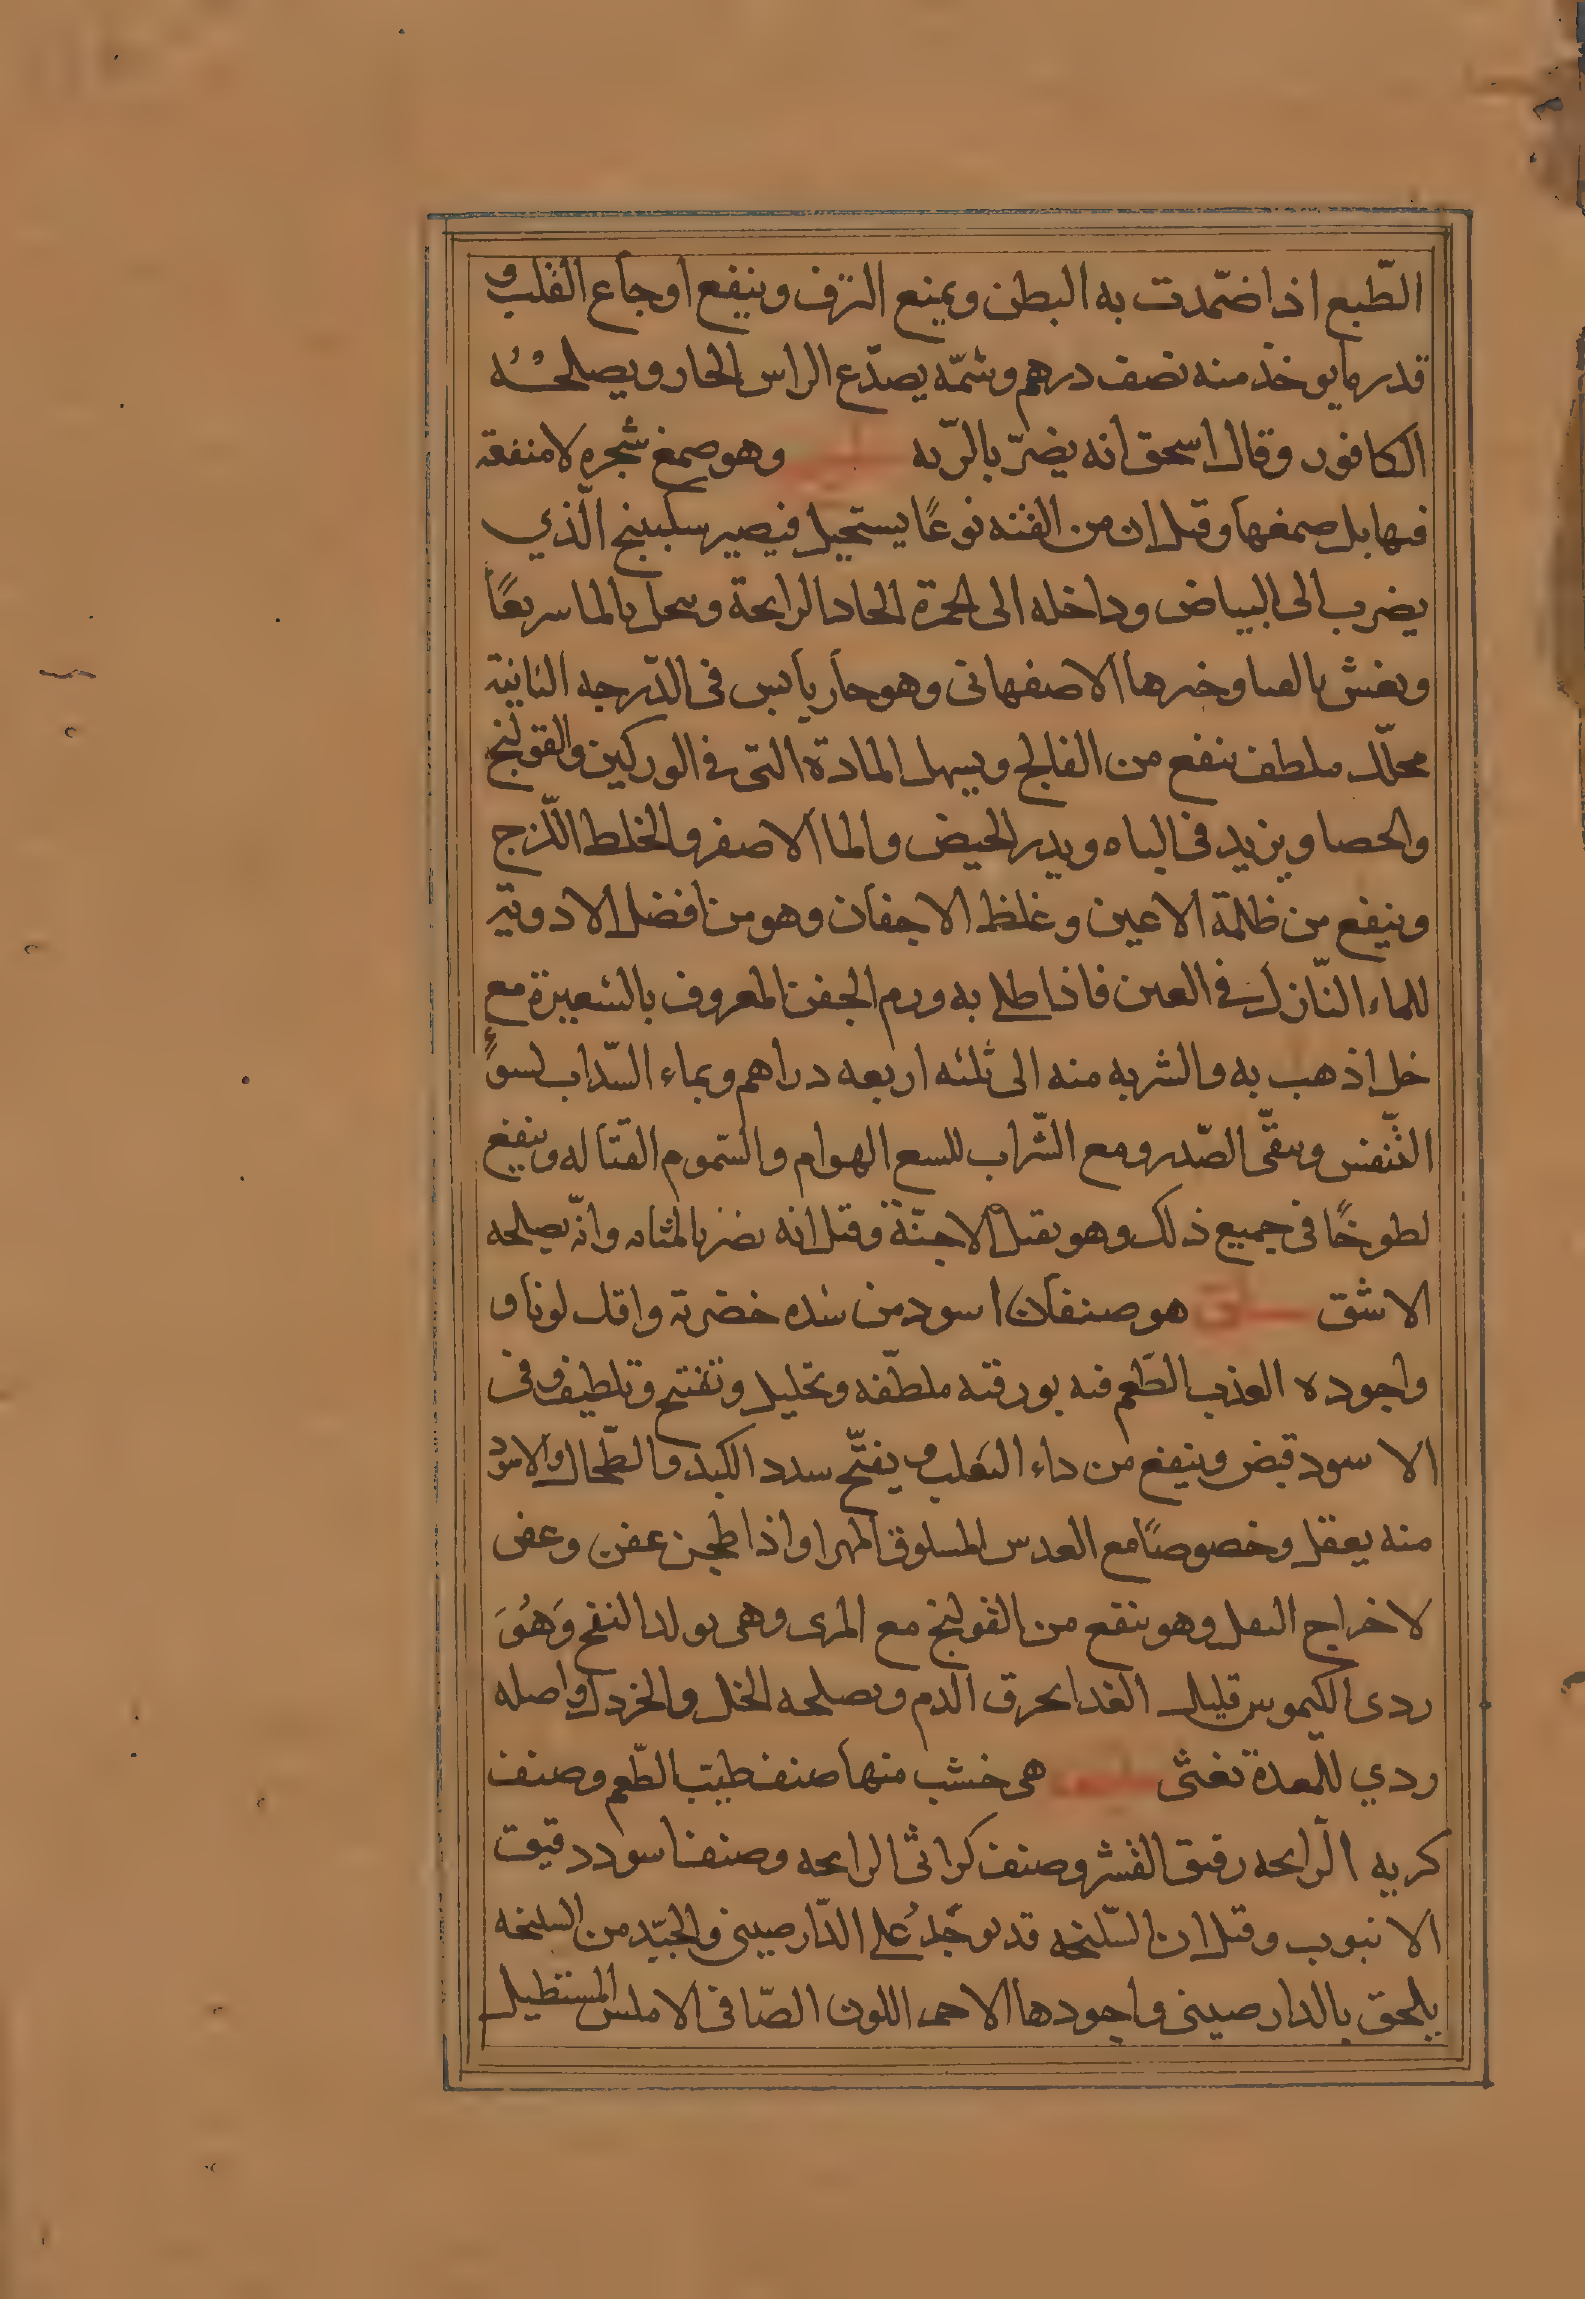 الطّبع اذا ضمّدت به البطن ويمنع النزف وينفع اوجاع القلب و
قدر ما يوخذ منه نصف درهم وشمّه يصدّع الراس الحار ويصلحه
الكافور وقال اسحق انه يضرّ بالرّيه وهو صمغ شجره لا منفعة
فيها بل صمغها وقيل ان من القنه نوعًا يستحيل فيصير سكبينج الّذي
يضرب الى البياض وداخله الى الحمرة الحاد الرايحة وينحل بالما سريعًا
ويغش بالقنا وخيرها الاصفهانى وهو حار يابس فى الدّرجه الثانية
محلّل ملطف ينفع من الفالج ويسهل المادة التى فى الوركين والقولنج
والحصا ويزيد فى الباه ويدر الحيض والما الاصفر والخلط اللّزج
وينفع من ظلمة الاعين وغلظ الاجفان وهو من افضل الادوية
للماء النّازل فى العين فاذا طلى به ورم الجفن المعروف بالشعيرة مع
خل اذهب به والشربه منه الى ثلثه اربعه دراهم وبماء السّداب لسوء
التّنفس وينقّى الصّدر ومع الشّراب للسع الهوام والسّموم القتّاله وينفع
لطوخًا فى جميع ذلك وهو يقتل الاجنّة وقيل انه يضر بالمثانه وانّه يصلحه
الاشق سلق هو صنفان اسود من شده خضرته واقل لونا و
واجوده العذب الطّعم فيه بورقيه ملطّفه وتحليل وتفتيح وتلطيف وفى
الاسود قبض وينفع من داء الثعلب و يفتّح سدد الكبد والطّحال والاسود
منه يعقل وخصوصًا مع العدس المسلوق المهرا واذا طحن عفن وعض
لاخراج الثفل وهو ينفع من القولنج مع المرى وهى يولد النفخ وَهُوَ
ردى الكيموس قليل الغدا يحرق الدم ويصلحه الخل والخردل واصله
ردي للمعدة تغثى سليخه هى خشب منها صنف طيّب الطّعم وصنف
كريه الرّايحه رقيق القشر وصنف كراثى الرايحه وصنف اسود دقيق
الانبوب وقيل ان السّليخه قد يوجد على الدّارصينى والجيّد من السليخه
يلحق بالدارصينى واجودها الاحمر اللون الصّافى الاملس المستطيل